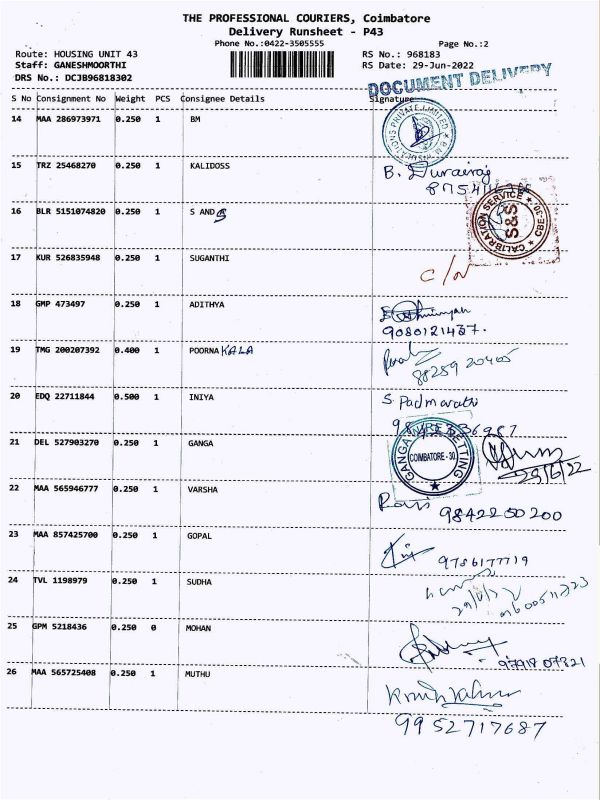 THE PROFESSIONAL COURIERS, Coimbatore
Delivery Runsheet - P43
Phone No.:0422-3505555 Page No.:2
Route: HOUSING UNIT 43 RS No.: 968183
Staff: GANESHMOORTHI RS Date: 29-Jun-2022
DRS No.: DCJB96818302
DOCUMENT DELIVERY
S No Consignment No Weight PCS Consignee Details Signature
14 MAA 286973971 0.250 1 BM
15 TRZ 25468270 0.250 1 KALIDOSS B. Durairaj
16 BLR 5151074820 0.250 1 S AND S
CALIBRATION SERVICE S&S CBE-30
17 KUR 526835948 0.250 1 SUGANTHI C/N
18 GMP 473497 0.250 1 ADITHYA
9080121437.
19 TMG 200207392 0.400 1 POORNA KALA
88259 20405
20 EDQ 22711844 0.500 1 INIYA S. Padmavathi
21 DEL 527903270 0.250 1 GANGA
GANGA COIMBATORE - 30
29/6/22
22 MAA 565946777 0.250 1 VARSHA Ravi
9842250200
23 MAA 857425700 0.250 1 GOPAL
9786177719
24 TVL 1198979 0.250 1 SUDHA
25 GPM 5218436 0.250 0 MOHAN
9791807821
26 MAA 565725408 0.250 1 MUTHU
9952717687